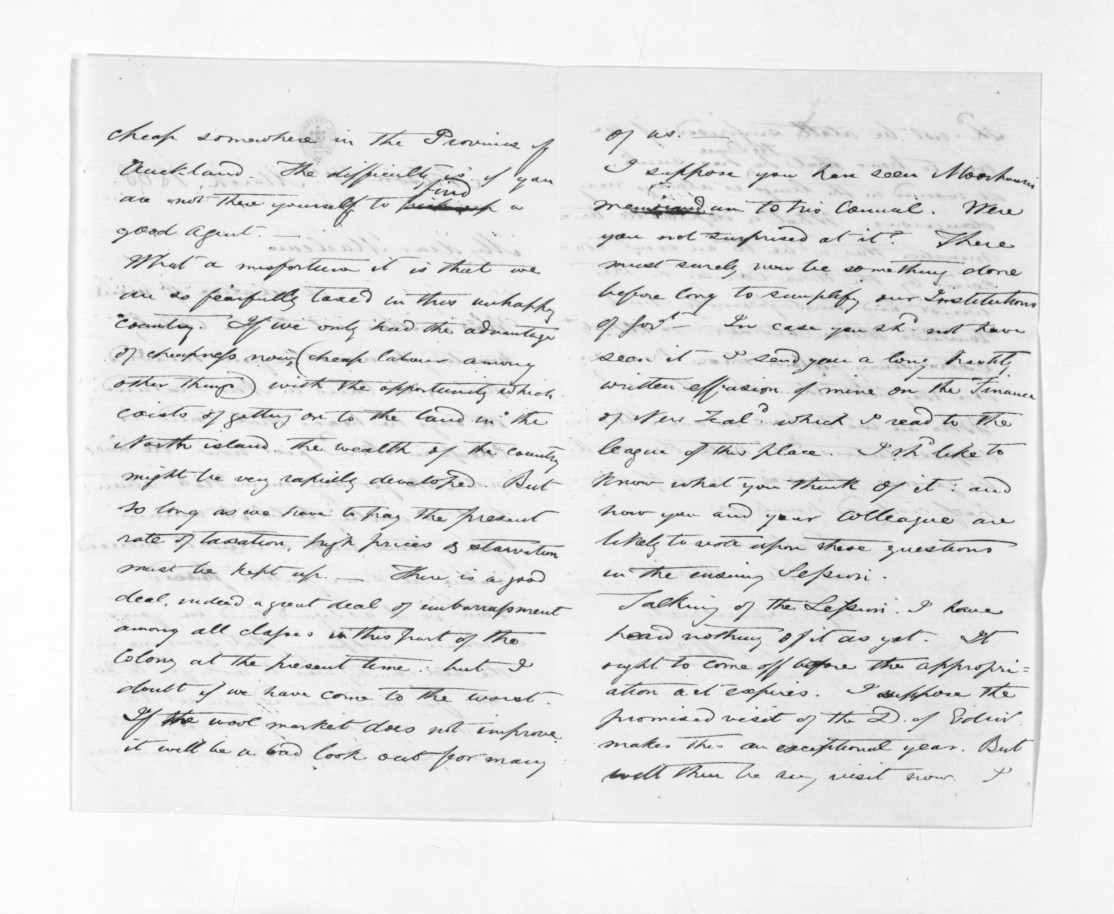 cheap somewhere in the Province of
Auckland. The difficulty is if you
find
are not there yourself to pick up a
good agent. —
What a misfortune it is that we
are so fearfully taxed in this unhappy
country. If we only had the advantage
of cheapness now, (cheap labour among
other things) with the opportunity which
exists of getting on to the land in the
North island the wealth of the country
might be very rapidly developed. But
so long as we have to pay the present
rate of taxation, high prices & starvation
must be kept up. — There is a good
deal, indeed a great deal of embarrassment
among all classes in this part of the
Colony at the present time: but I
doubt if we have come to the worst.
If the wool market does not improve
it will be a bad look out for many
of us. —
I suppose you have seen Moorhouse's
memorandum to his Council. Were
you not surprised at it? There
must surely now be something done
before long to simplify our Institutions
of Govt. In case you shd. not have
seen it I send you a long, hastily
written effusion of mine on the Finance
of New Zeald. which I read to the
league of this place. I shd. like to
know what you think of it: and
how you and your Colleague are
likely to vote upon these questions
in the ensuing Session.
Talking of the Session. I have
heard nothing of it as yet. It
ought to come off before the appropri=
ation act expires. I suppose the
promised visit of the D. of Edinr.
makes this an exceptional year. But
will there be any visit now. I